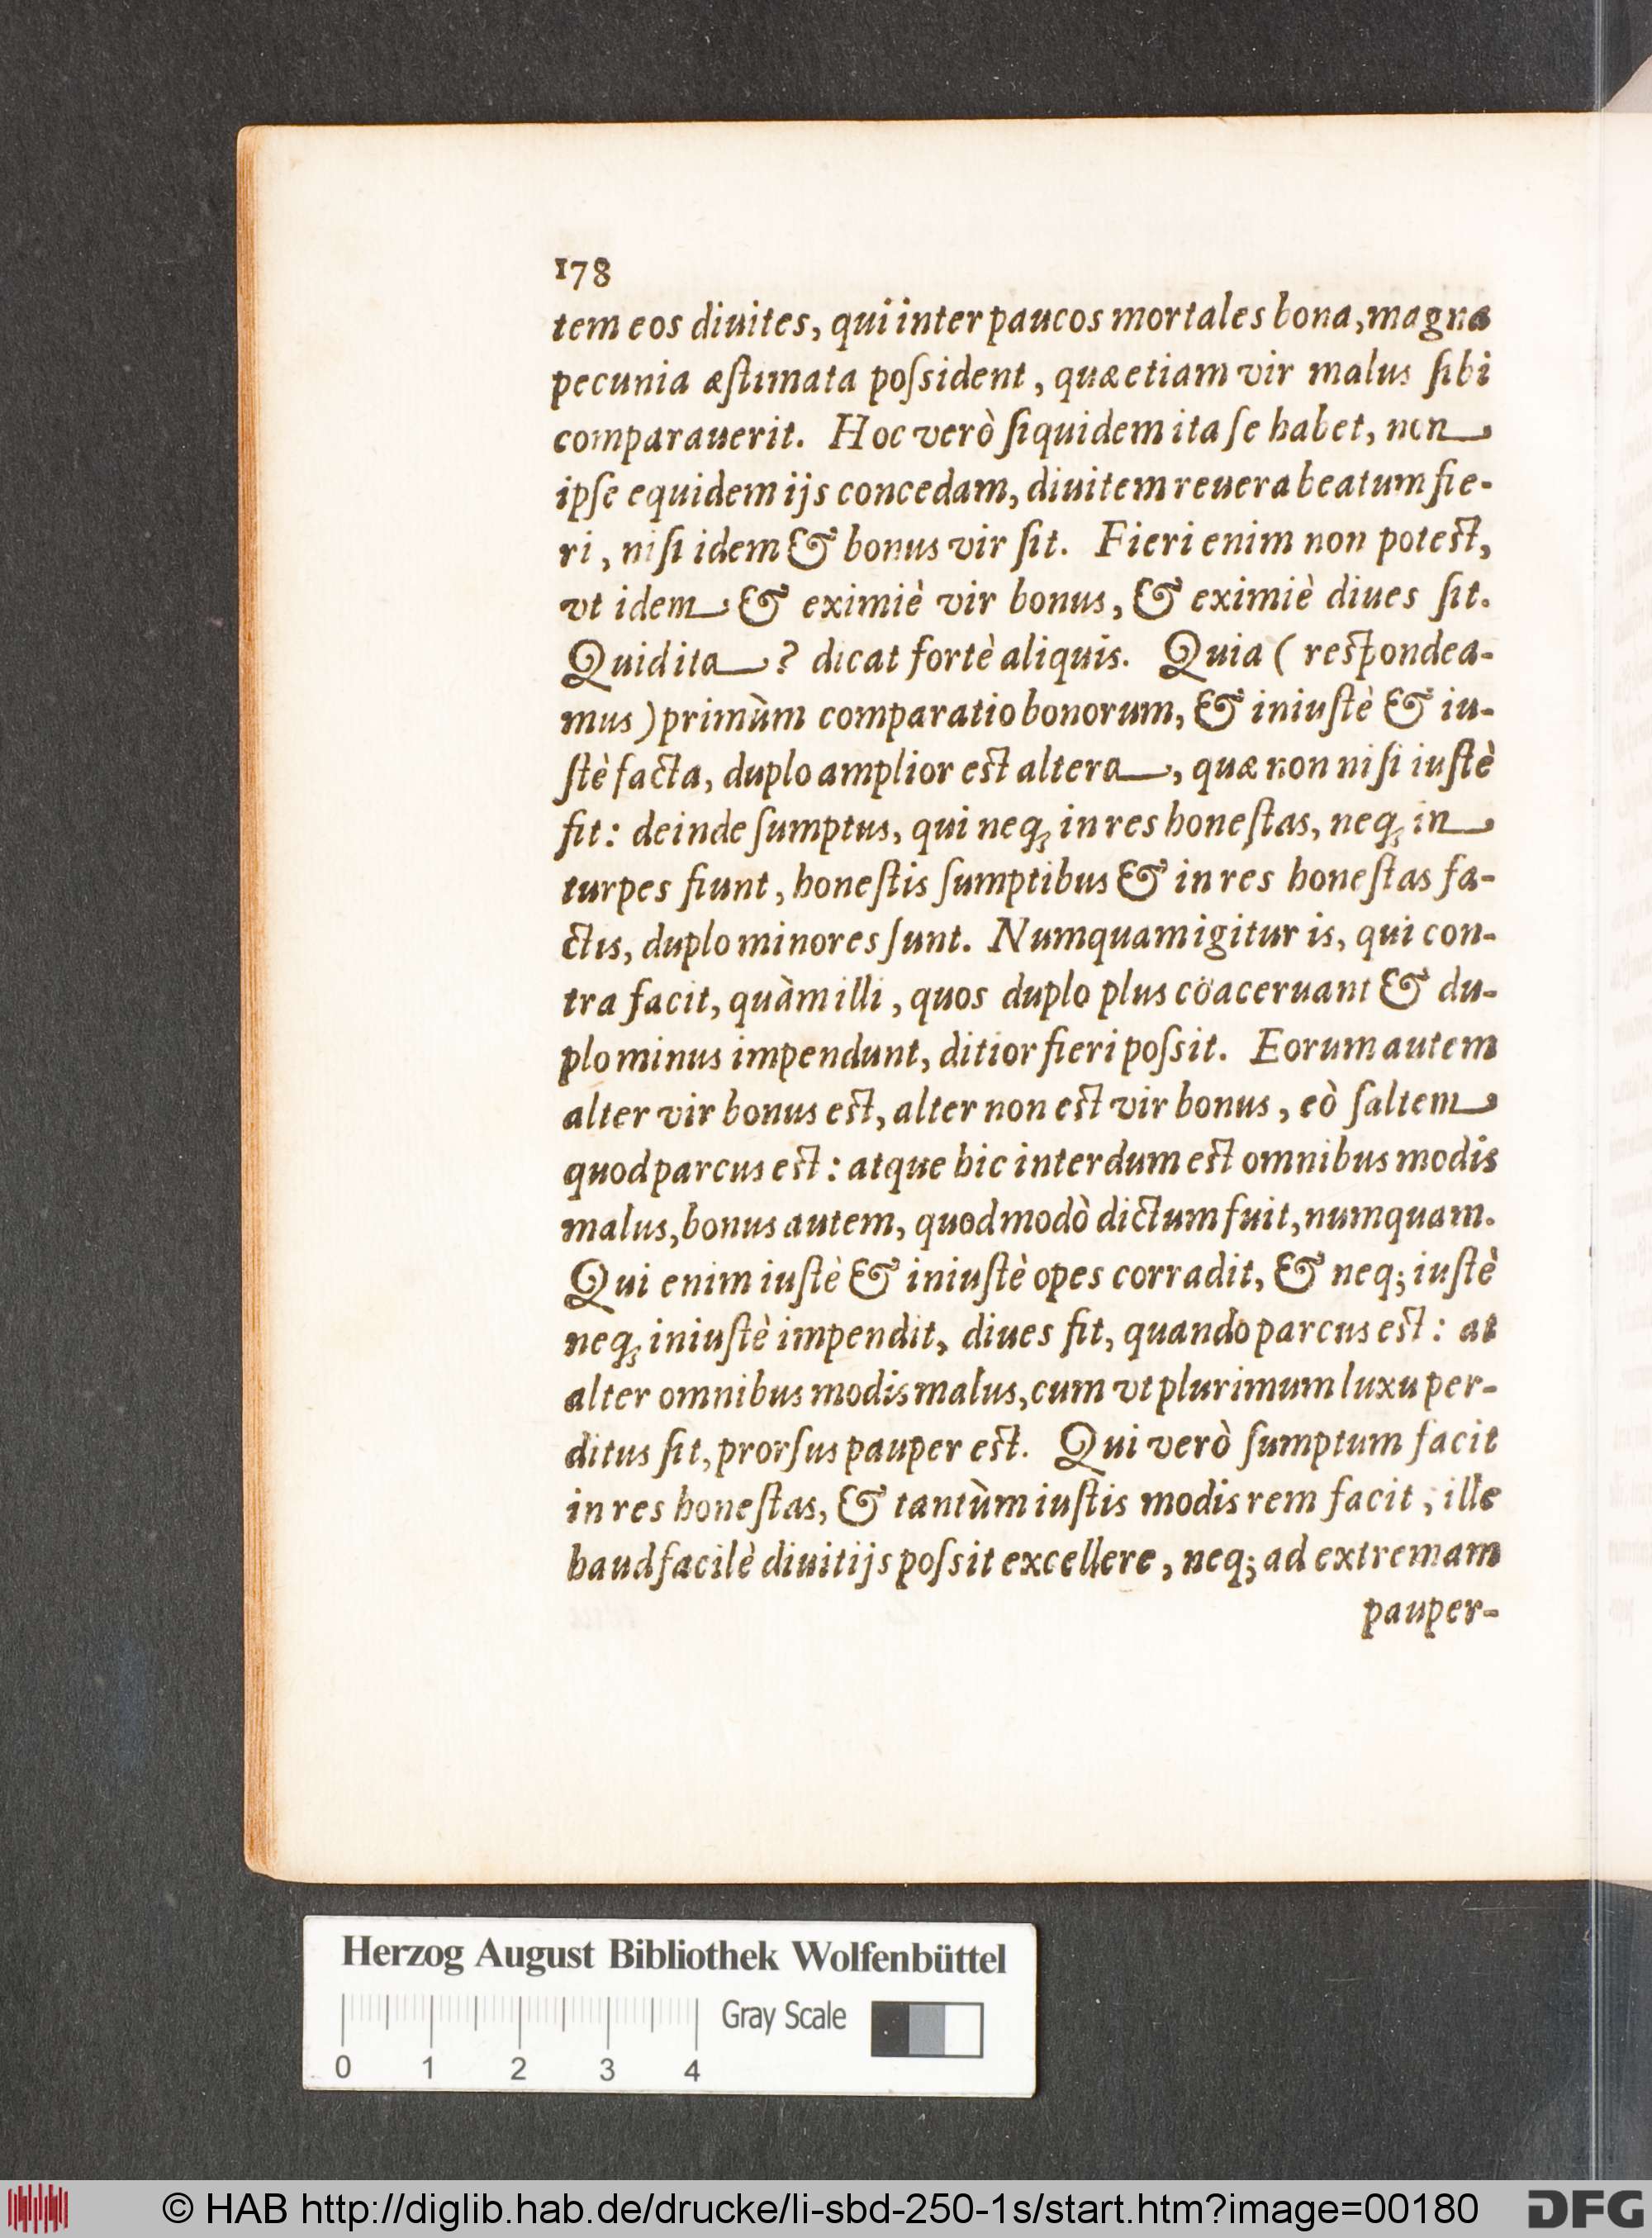 178
tem eos diuites, qui inter paucos mortales bona, magna
pecunia æſtimata poſsident, quæ etiam vir malus ſibi
comparauerit. Hoc verò ſiquidem ita ſe habet, non
ipſe equidem ijs concedam, diuitem reuera beatum fie-
ri, niſi idem & bonus vir ſit. Fieri enim non poteſt,
vt idem & eximiè vir bonus, & eximiè diues ſit.
Quid ita? dicat fortè aliquis. Quia (reſpondea-
mus) primùm comparatio bonorum, & iniuſtè & iu-
ſtè facta, duplo amplior eſt altera, quæ non niſi iuſtè
fit: deinde ſumptus, qui neq; in res honeſtas, neq; in
turpes fiunt, honeſtis ſumptibus & in res honeſtas fa-
ctis, duplo minores ſunt. Numquam igitur is, qui con-
tra facit, quàm illi, quos duplo plus cöaceruant & du-
plo minus impendunt, ditior fieri poſsit. Eorum autem
alter vir bonus eſt, alter non eſt vir bonus, eò ſaltem
quod parcus eſt: atque hic interdum eſt omnibus modis
malus, bonus autem, quod modò dictum fuit, numquam.
Qui enim iuſtè & iniuſtè opes corradit, & neq; iuſtè
neq; iniuſtè impendit, diues fit, quando parcus eſt: at
alter omnibus modis malus, cum vt plurimum luxu per-
ditus ſit, prorſus pauper eſt. Qui verò ſumptum facit
in res honeſtas, & tantùm iuſtis modis rem facit, ille
haud facilè diuitijs poſsit excellere, neq; ad extremam
pauper-
Herzog August Bibliothek Wolfenbüttel
Gray Scale
0 1 2 3 4
© HAB http://diglib.hab.de/drucke/li-sbd-250-1s/start.htm?image=00180
DFG